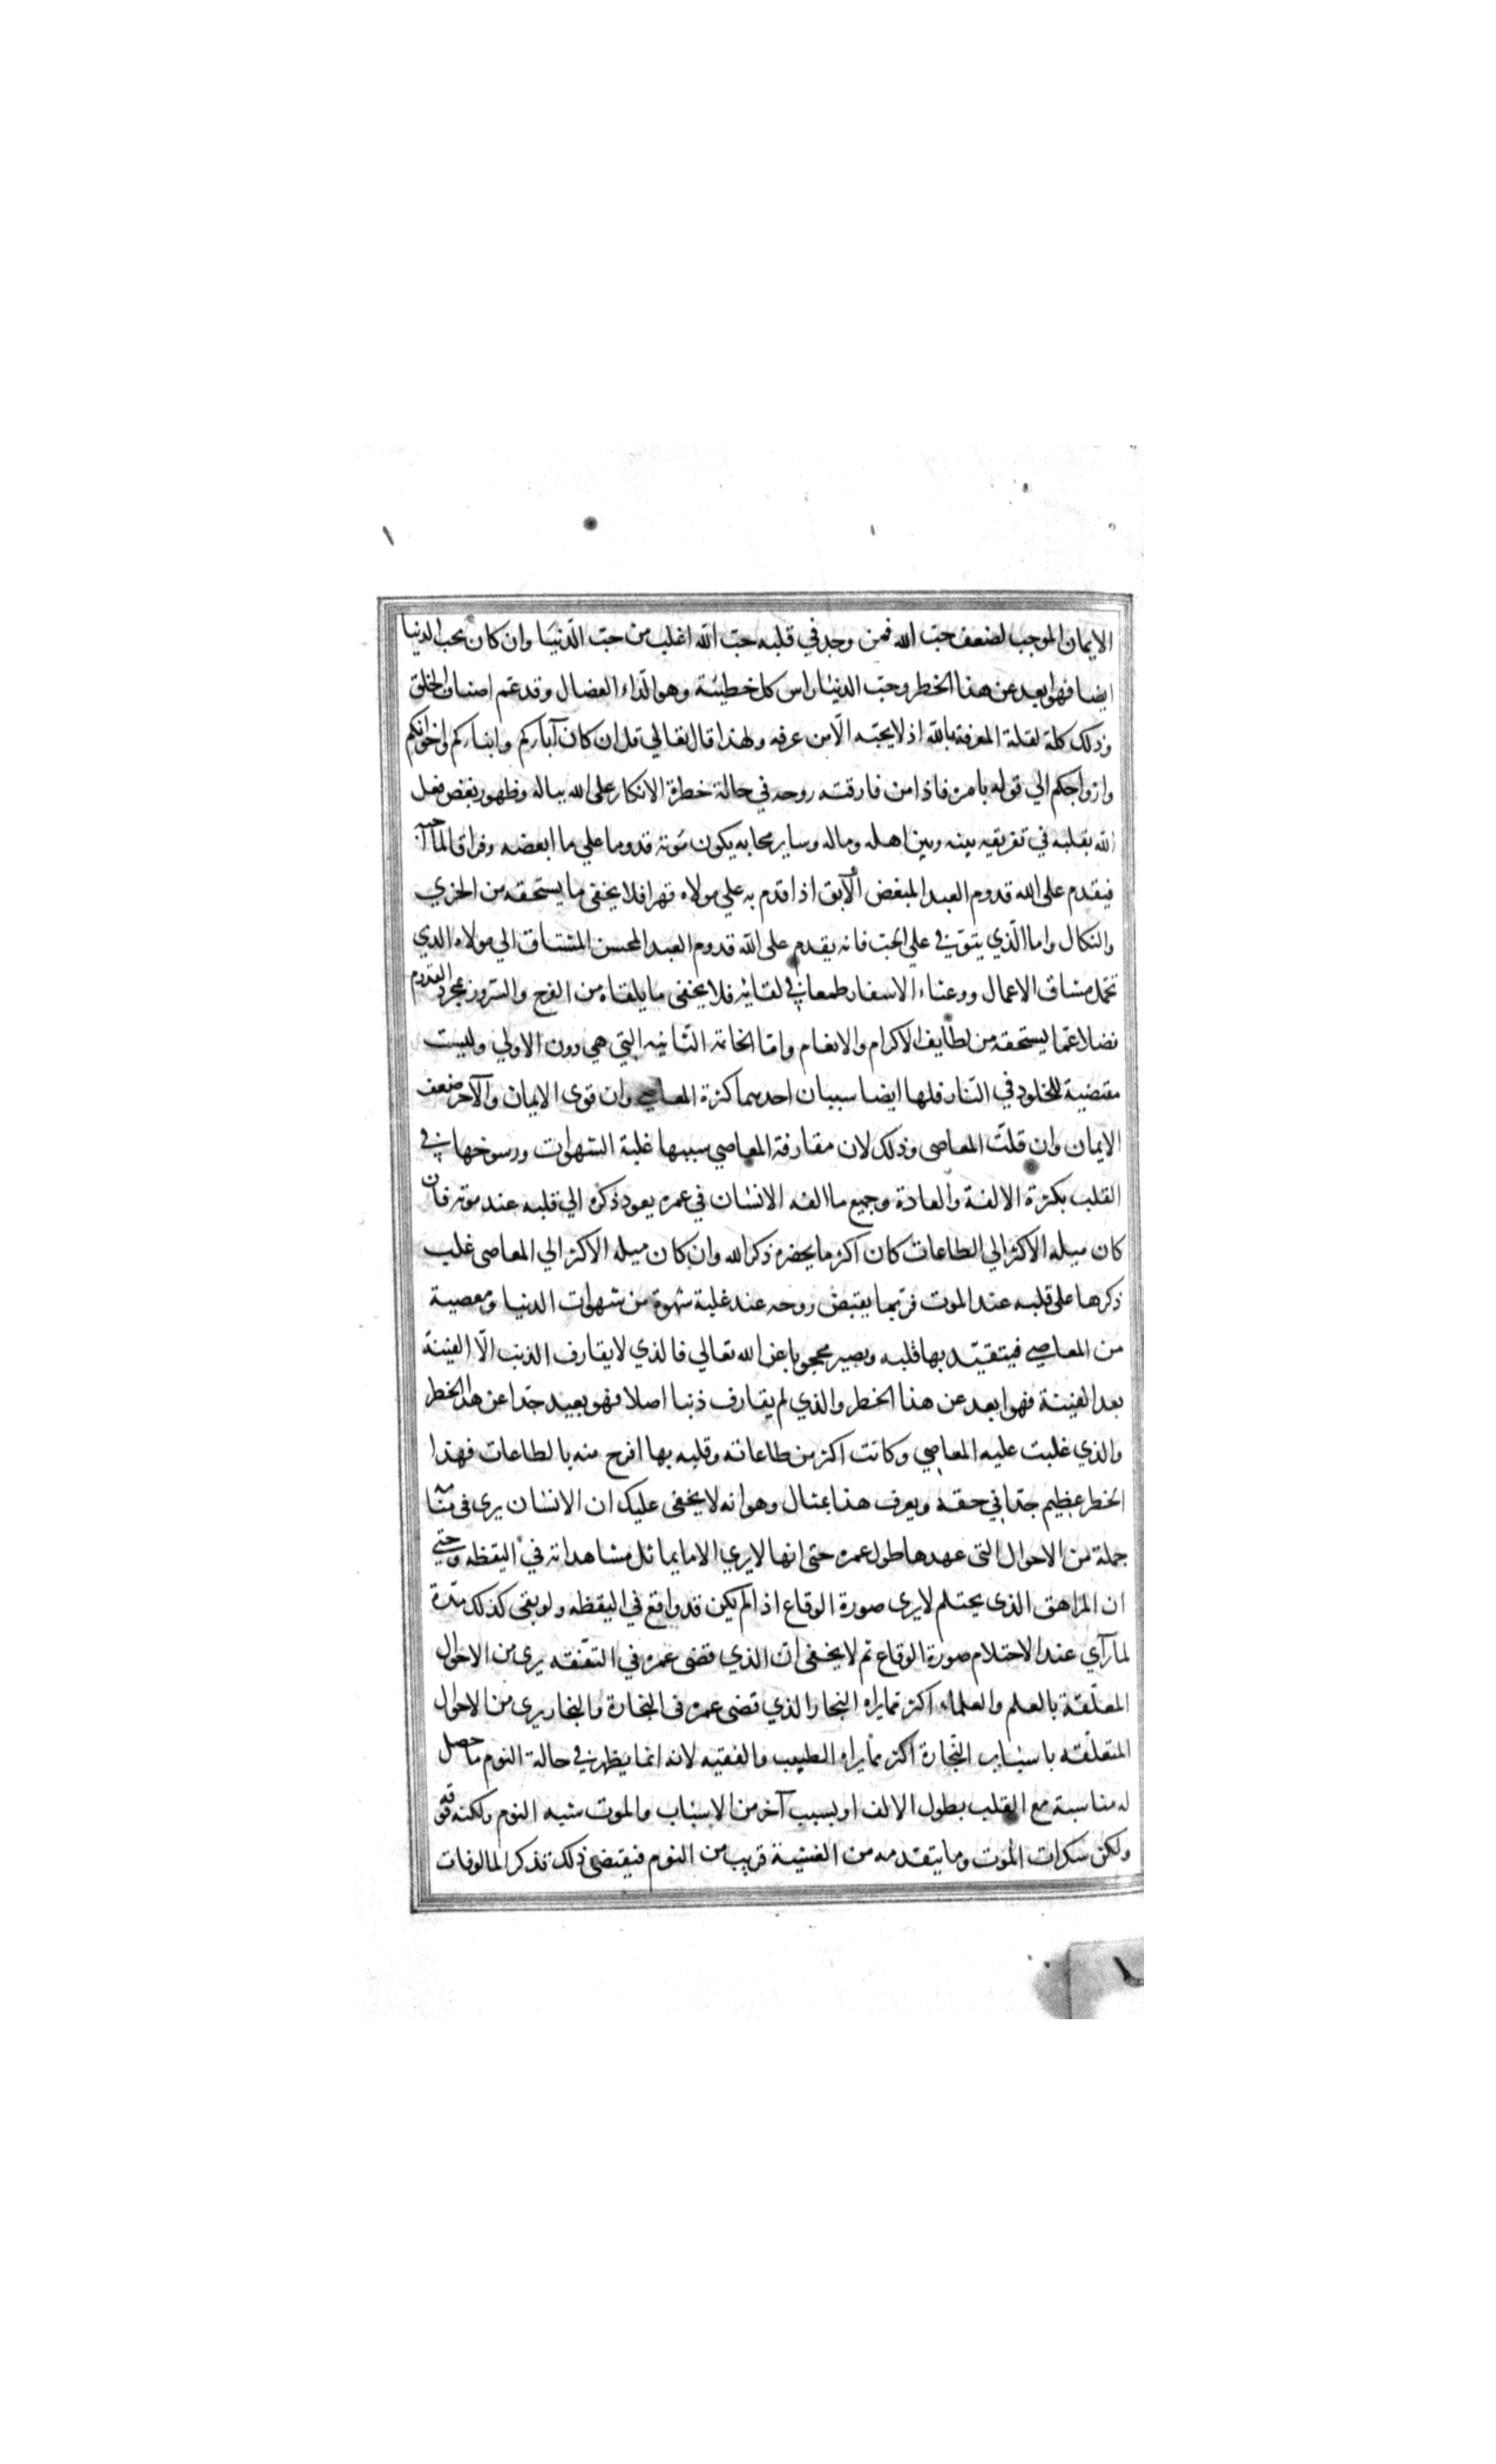 الايمان الموجب لضعف حبّ الله فمن وجد في قلبه حبّ الله اغلب من حبّ الدّنيا وان كان يحب الدنيا
ايضا فهو ابعد عن هذا الخطر وحبّ الدنيا راس كل خطيئة وهو الدّاء العضال وقد عمّ اصناف الخلق
وذلك كلة لقلة المعرفة بالله اذ لا يحبّه الّا من عرفه ولهذا قال تعالي قل ان كان آباركم وابناركم واخوانكم
وازواجكم الي قوله بامره فاذا من فارقته روحه في حالة خطرة الانكار على الله بباله وظهور بغض فعل
الله بقلبه في تفريقه بينه وبين اهله وماله وساير محابه يكون موته قدوما علي ما ابغضه وفراقا لما احبه
فيقدم على الله قدوم العبد المبغض الآبق اذا قدم به علي مولاه قهرا فلا يخفى ما يستحقه من الخزي
والنكال واما الّذي يتوفي علي الحبّ فانه يقدم على الله قدوم العبد المحسن المشتاق الي مولاه الذي
تحمل مشاق الاعمال ووعثاء الاسفار طمعا في لقائه فلا يخفى ما يلقاه من الفرح والسّرور بمجرد القدوم
فضلا عمّا يستحقه من لطايف الاكرام والانعام وامّا الخاتمة الثّانيه التي هي دون الاولي وليست
مقتضية للخلود في النّار فلها ايضا سببان احدهما كثرة المعاصي وان قوى الايمان والآخر ضعف
الايمان وان قلّت المعاصى وذلك لان مقارفة المعاصي سببها غلبة الشهوات ورسوخها في
القلب بكثرة الالفة والعادة وجميع ما الفه الانسان في عمره يعود ذكره الي قلبه عند موته فان
كان ميله الاكثر الي الطاعات كان اكثر ما يحضره ذكر الله وان كان ميله الاكثر الي المعاصى غلب
ذكرها على قلبه عند الموت فربّما يقبض روحه عند غلبة شهوة من شهوات الدنيا ومعصية
من المعاصي فيتقيّد بها قلبه ويصير محجوبا عن الله تعالي فالذي لا يقارف الذنب الّا الفينة
بعد الفينة فهو ابعد عن هذا الخطر والذي لم يقارف ذنبا اصلا فهو بعيد جدّا عن هذا الخطر
والذي غلبت عليه المعاصي وكانت اكثر من طاعاته وقلبه بها افرح منه بالطاعات فهذا
الخطر عظيم جدّا في حقه ويعرف هذا بمثال وهو انه لا يخفى عليك ان الانسان يرى في منامه
جملة من الاحوال التى عهدها طول عمره حتى انها لا يري الا ما يماثل مشاهداته في اليقظه وحتي
ان المراهق الذى يحتلم لا يرى صورة الوقاع اذا لم يكن قد واقع في اليقظه ولو بقى كذلك مدّة
لما رآي عند الاحتلام صورة الوقاع ثم لا يخفى ان الذي قضى عمره في التفقّه يرى من الاحوال
المعلّقة بالعلم والعلماء اكثر ممّا يراه النجار الذي قضى عمره فى النجارة والنجار يرى من الاحوال
المتعلّقه باسباب النّجارة اكثر ممّا يراه الطبيب والفقيه لانه انما يظهر في حالة النوم ما حصل
له مناسبة مع القلب بطول الالف او بسبب آخر من الاسباب والموت شبيه النوم ولكنه فوقه
ولكن سكرات الموت وما يتقدمه من الغشية قريب من النوم فيقتضى ذلك تذكر المالوفات